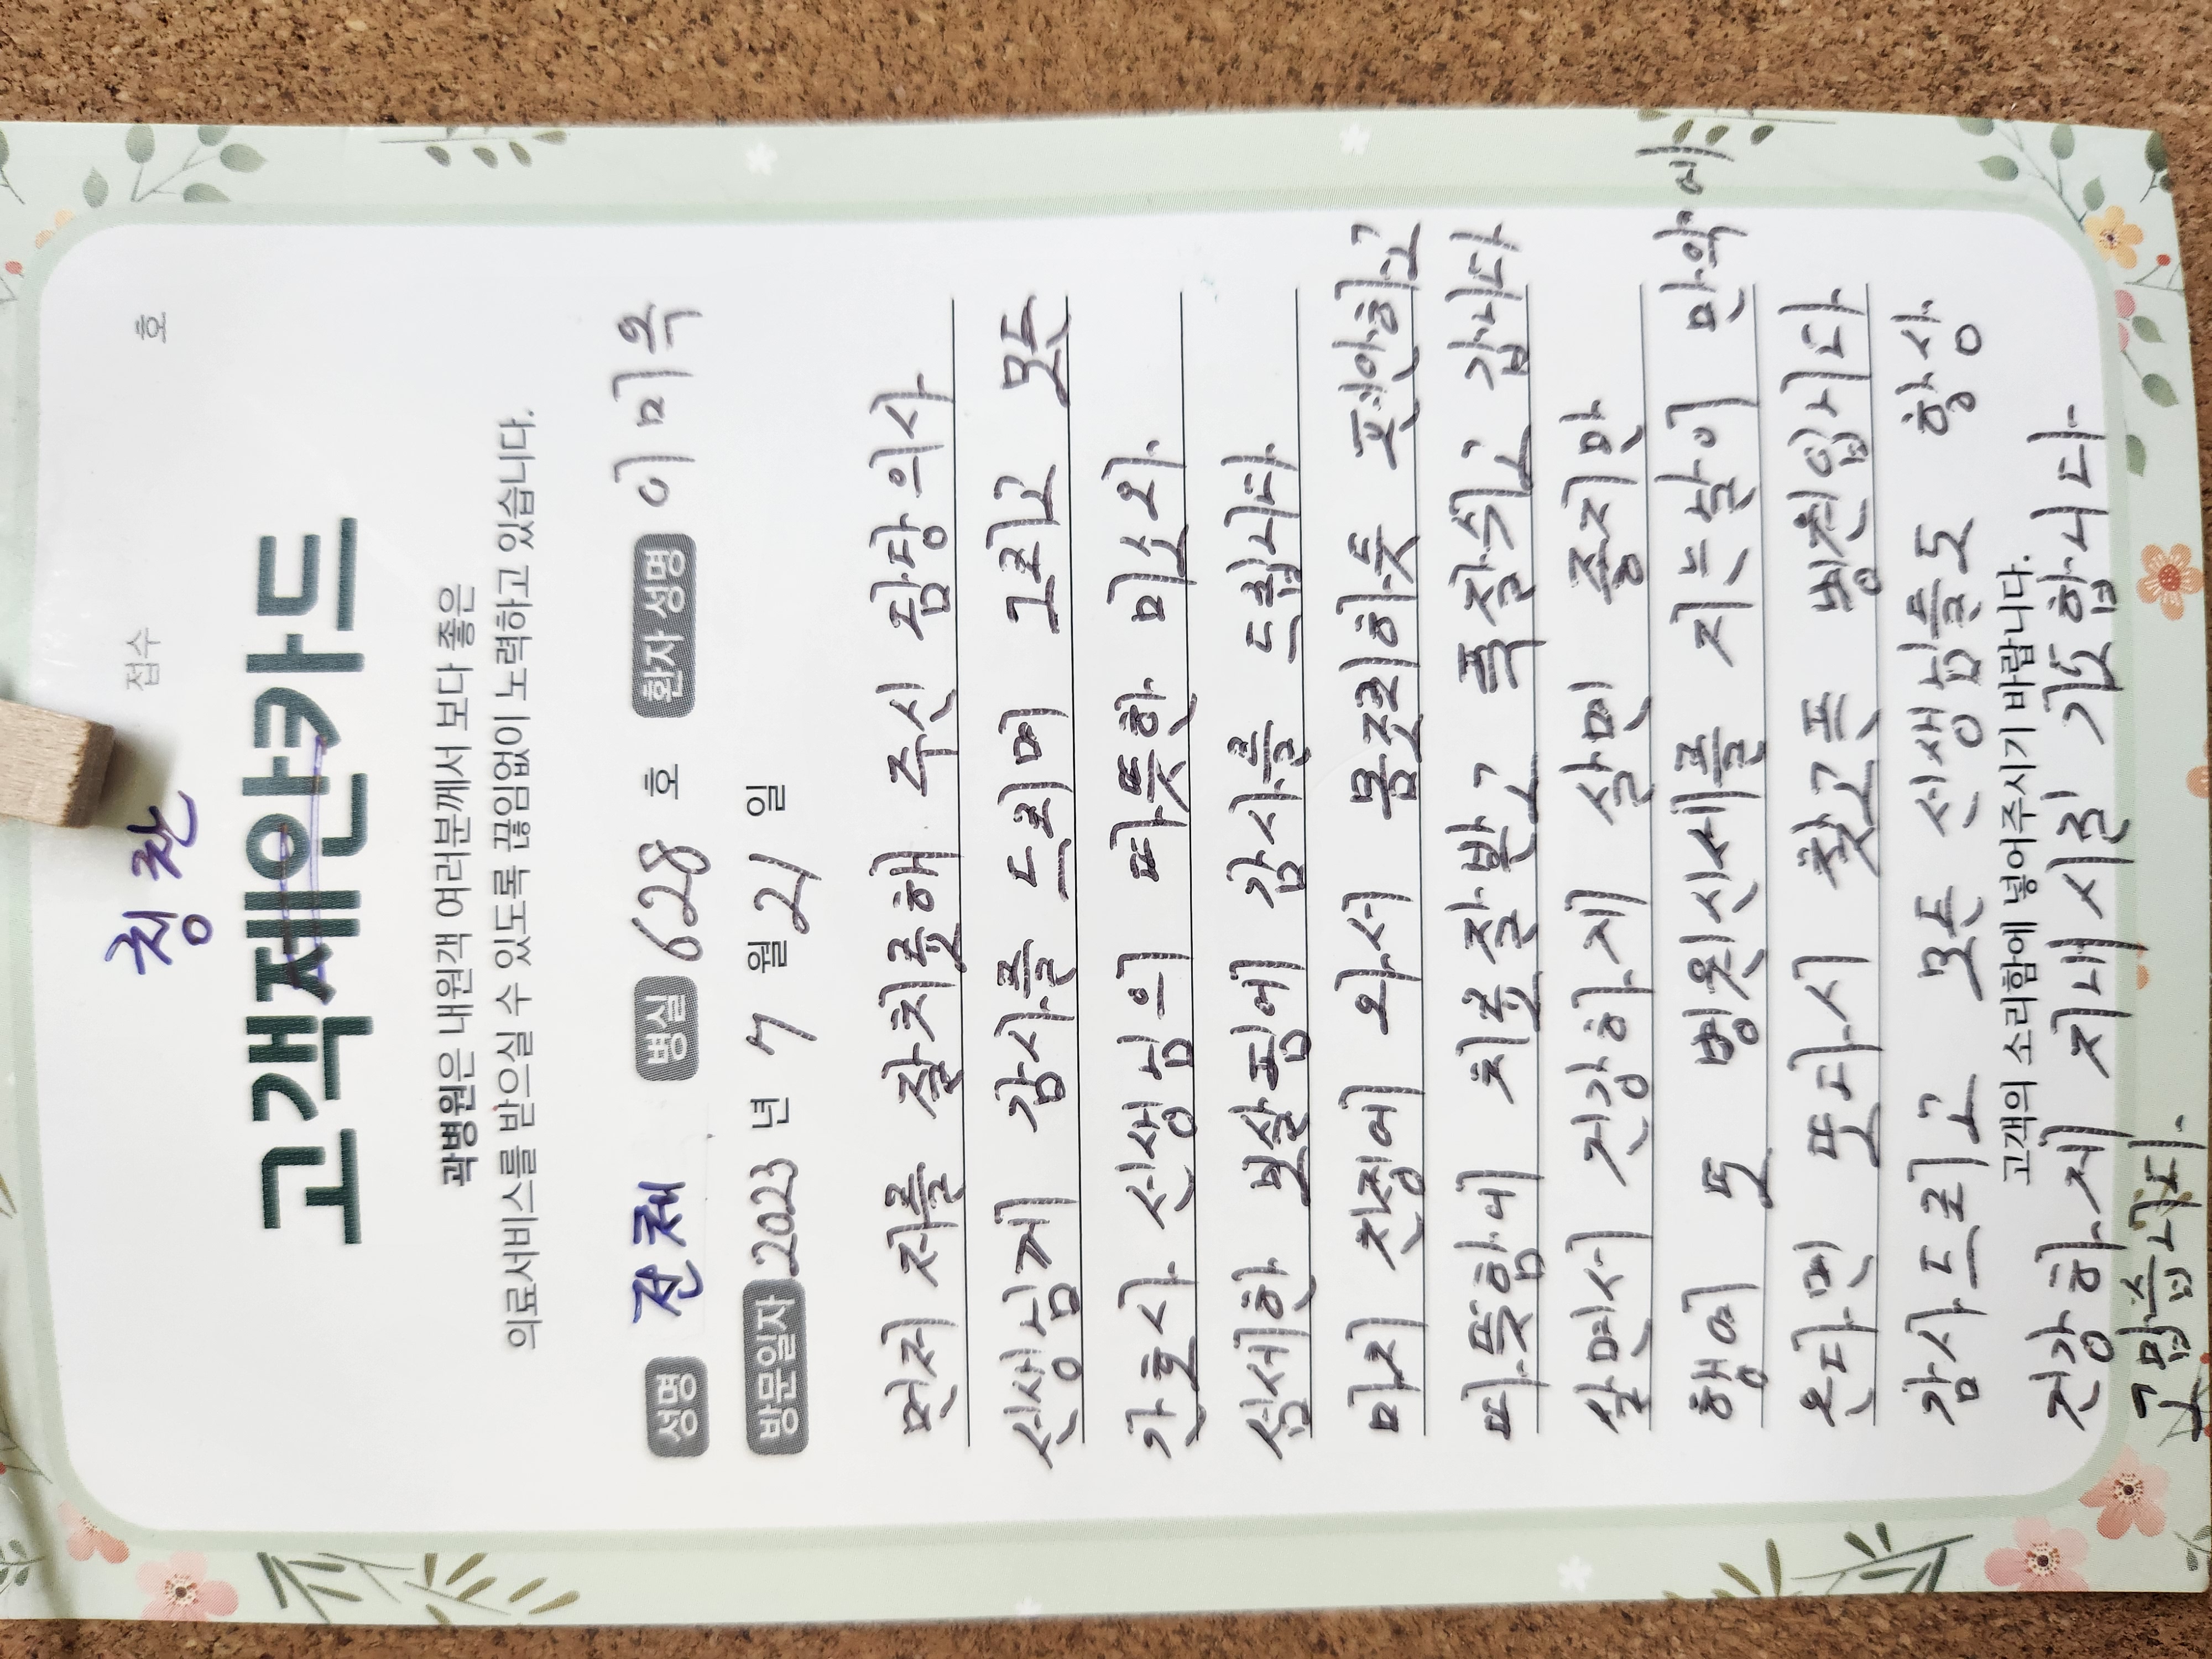 접수 호
칭찬
고객제안카드
곽병원은 내원객 여러분께서 보다 좋은
의료서비스를 받으실 수 있도록 끊임없이 노력하고 있습니다.
성명 전체 병실 628 호 환자 성명 이미옥
방문일자 2023 년 7 월 21 일
먼저 저를 잘치료해 주신 담당의사
선생님께 감사를 드리며 그리고 모든
간호사 선생님의 따뜻한 미소와
섬세한 보살핌에 감사를 드립니다
마치 친정에 와서 몸조리하듯 편안하고
따뜻함에 치료잘받고 푹잘쉬고 갑니다
살면서 건강하게 살면 좋지만
행여 또 병원신세를 지는날이 만약에
온다면 또다시 찾고픈 병원입니다
감사드리고 모든 선생님들도 항상
고객의 소리함에 넣어주시기 바랍니다.
건강하게 지내시길 기도합니다.
고맙습니다.